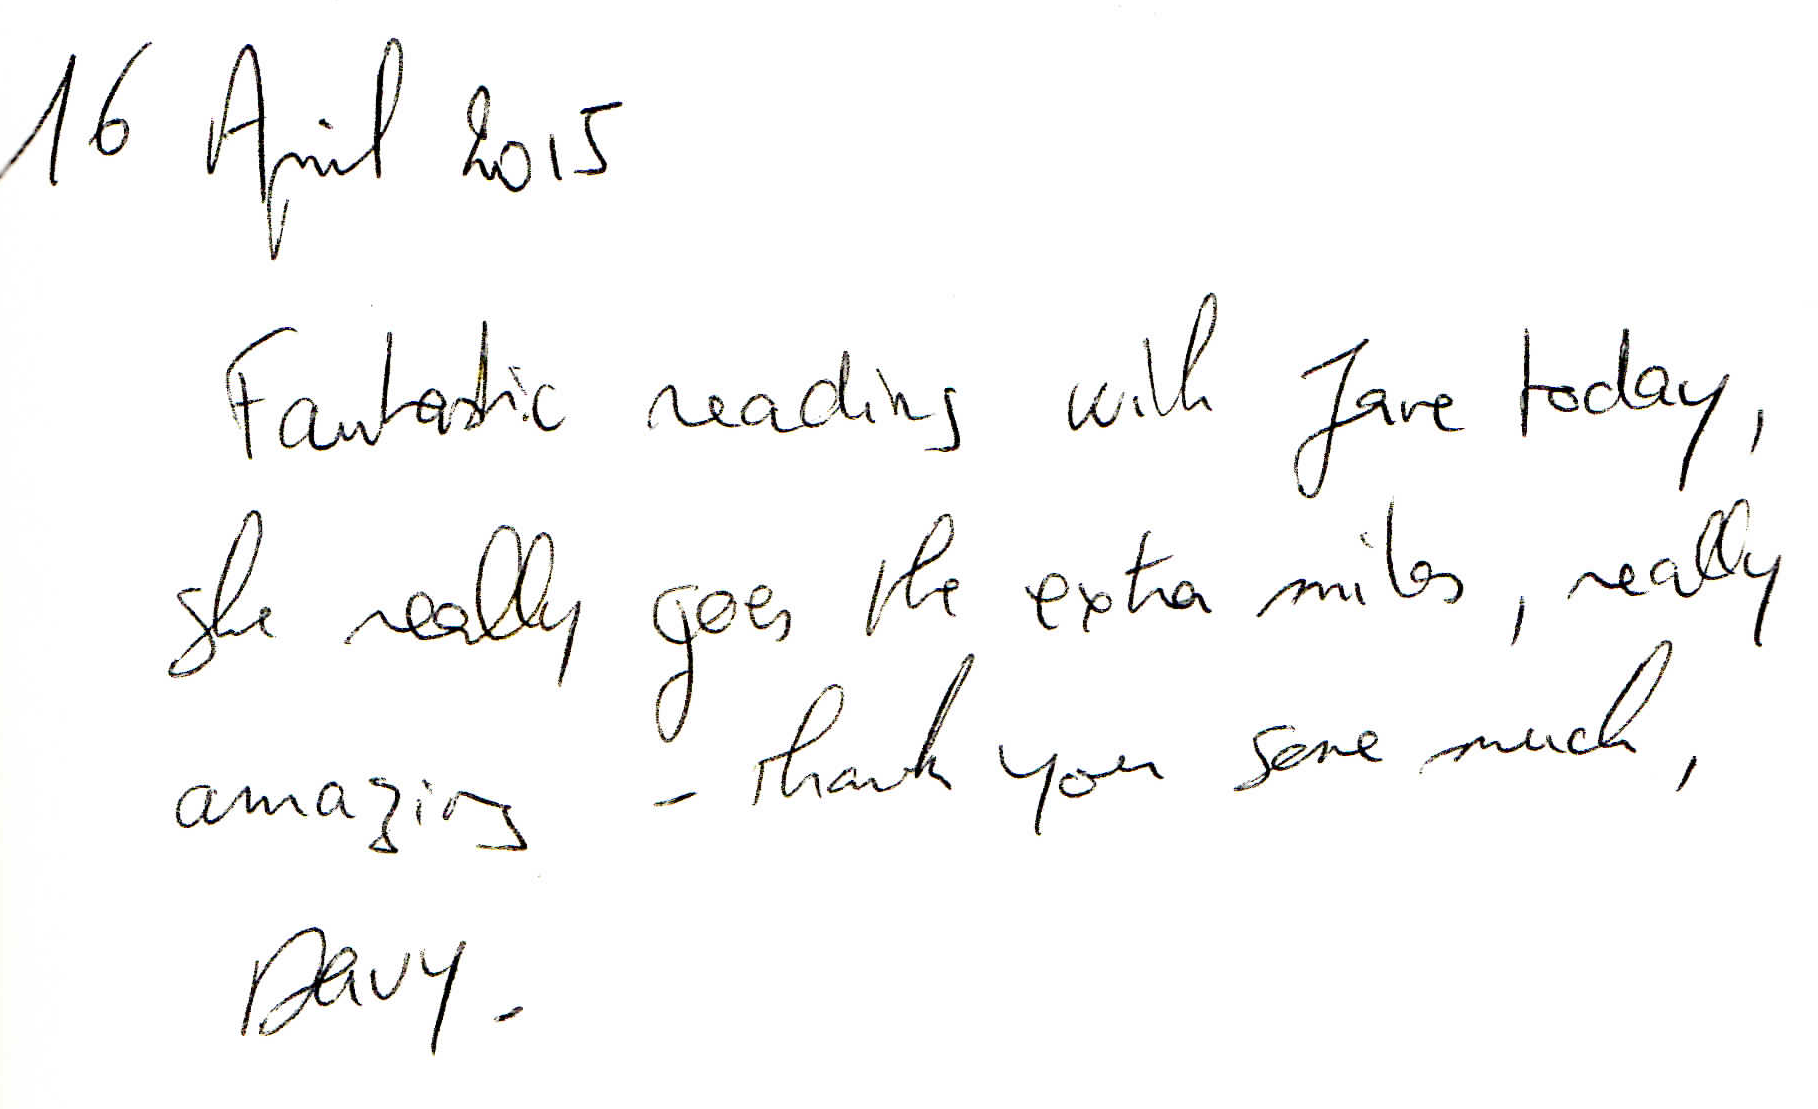 16 April 2015
Fantastic reading with Jane today,
she really goes the extra miles, really
amazing - thank you sone much,
Davy.